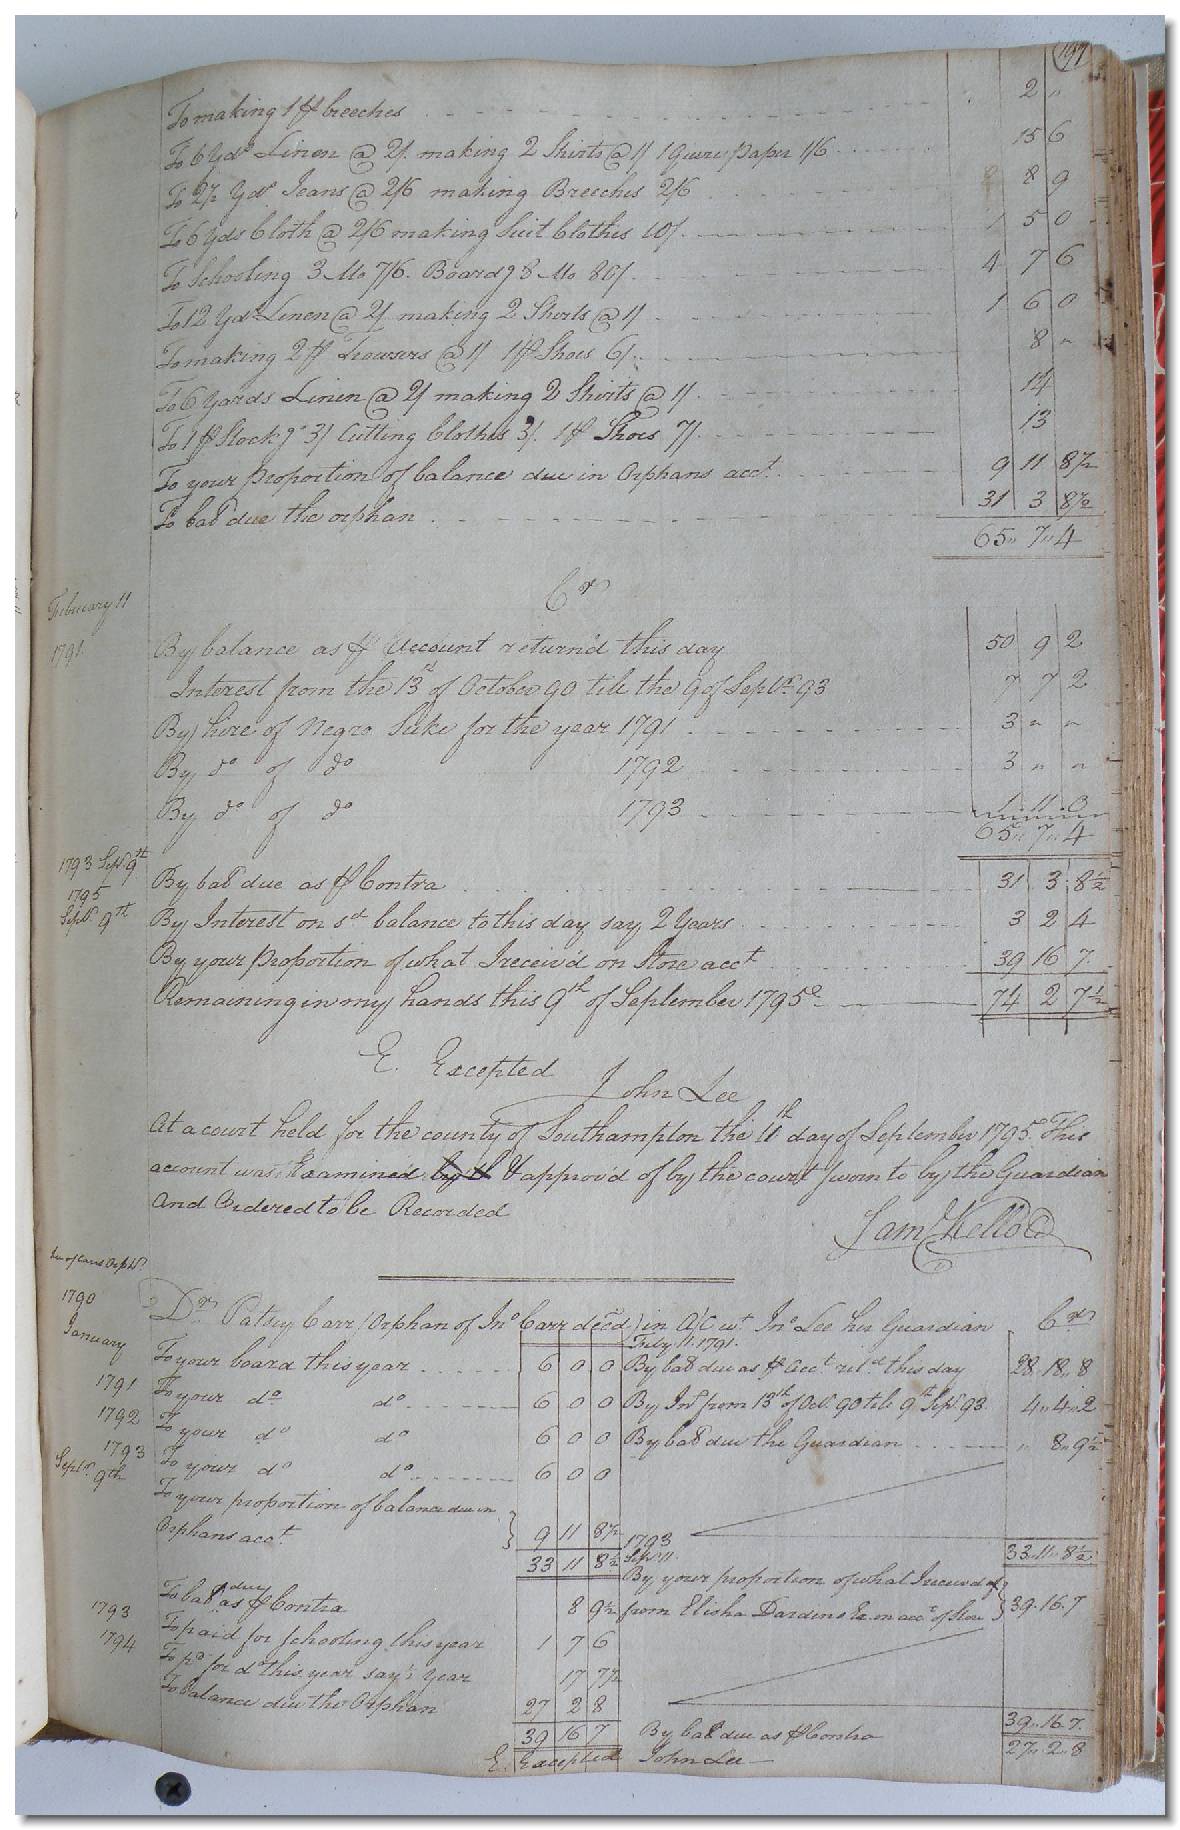 197
To making 1 pr breeches 2 "
To 6 Yds Linen @ 2/ making 2 Shirts @ 1/ 1 Quire paper 1/6 15 6
To 2½ Yds Jeans @ 2/6 making Breeches 2/6 8 9
To 6 Yds Cloth @ 2/6 making Suit Clothes 10/ 1 5 0
To Schooling 3 Mo 7/6. Board 8 Mo 80/ 4 7 6
To 12 Yds Linen @ 2/ making 2 Shirts @ 1/ 1 6 0
To making 2 pr Trowsers @ 1/ 1 pr Shoes 6/ 8 "
To 6 Yards Linen @ 2/ making 2 Shirts @ 1/ 14
To 1 pr Stockgs 3/ Cutting Clothes 3/. 1 pr Shoes 7/ 13
To your proportion of balance due in Orphans acct. 9 11 8½
To bal due the orphan 31 3 8½
65" 7" 4
Cr
February 11
1791
By balance as pr Account return'd this day 50 9 2
Interest from the 13th of October 90 till the 9 of Septr 93 7 7 2
By hire of Negro Suke for the year 1791 3 " "
By do of do 1792 3 " "
By do of do 1793 1 11 0
65" 7" 4
1793 Sept 9th
By bal due as pr Contra 31 3 8½
1795
Septr 9th
By Interest on sd balance to this day say 2 Years 3 2 4
By your proportion of what I receiv'd on Store acct 39 16 7
Remaining in my hands this 9th of September 1795 74 2 7½
E. Excepted John Lee
At a court held for the county of Southampton the 11th day of September 1795 This
account was Examined by th & approv'd of by the court sworn to by the Guardian
And Ordered to be Recorded
Saml Kello CC
of Cars Orphs.
1790
Dr Patsey Carr (Orphan of Jno Carr decd) in A/C wt Jno Lee her Guardian Cr
January
Feby 11. 1791.
To your board this year 6 0 0 By bal due as pr acct retd this day 28" 18" 8
1791
To your do do 6 0 0 By Int from 13th of Oct 90 till 9th Sept 93 4" 4" 2
1792
To your do do 6 0 0 By bal due the Guardian " 8" 9½
1793
Septr 9th
To your do do 6 0 0
To your proportion of balance due in
Orphans acct. 9 11 8½
33 11 8½ 33" 11" 8½
1793
Sept 11.
By your proportion of what I receiv'd of
from Elisha Dardens Ex on acct of Store 39. 16. 7
To bal due as pr Contra 8 9½
1793
To paid for schooling this year 1 7 6
1794
To pd for do this year say ½ Year 17 7½
To balance due the Orphan 27 2 8
39 16 7 39" 16" 7
By bal due as pr Contra 27" 2" 8
E. Excepted John Lee